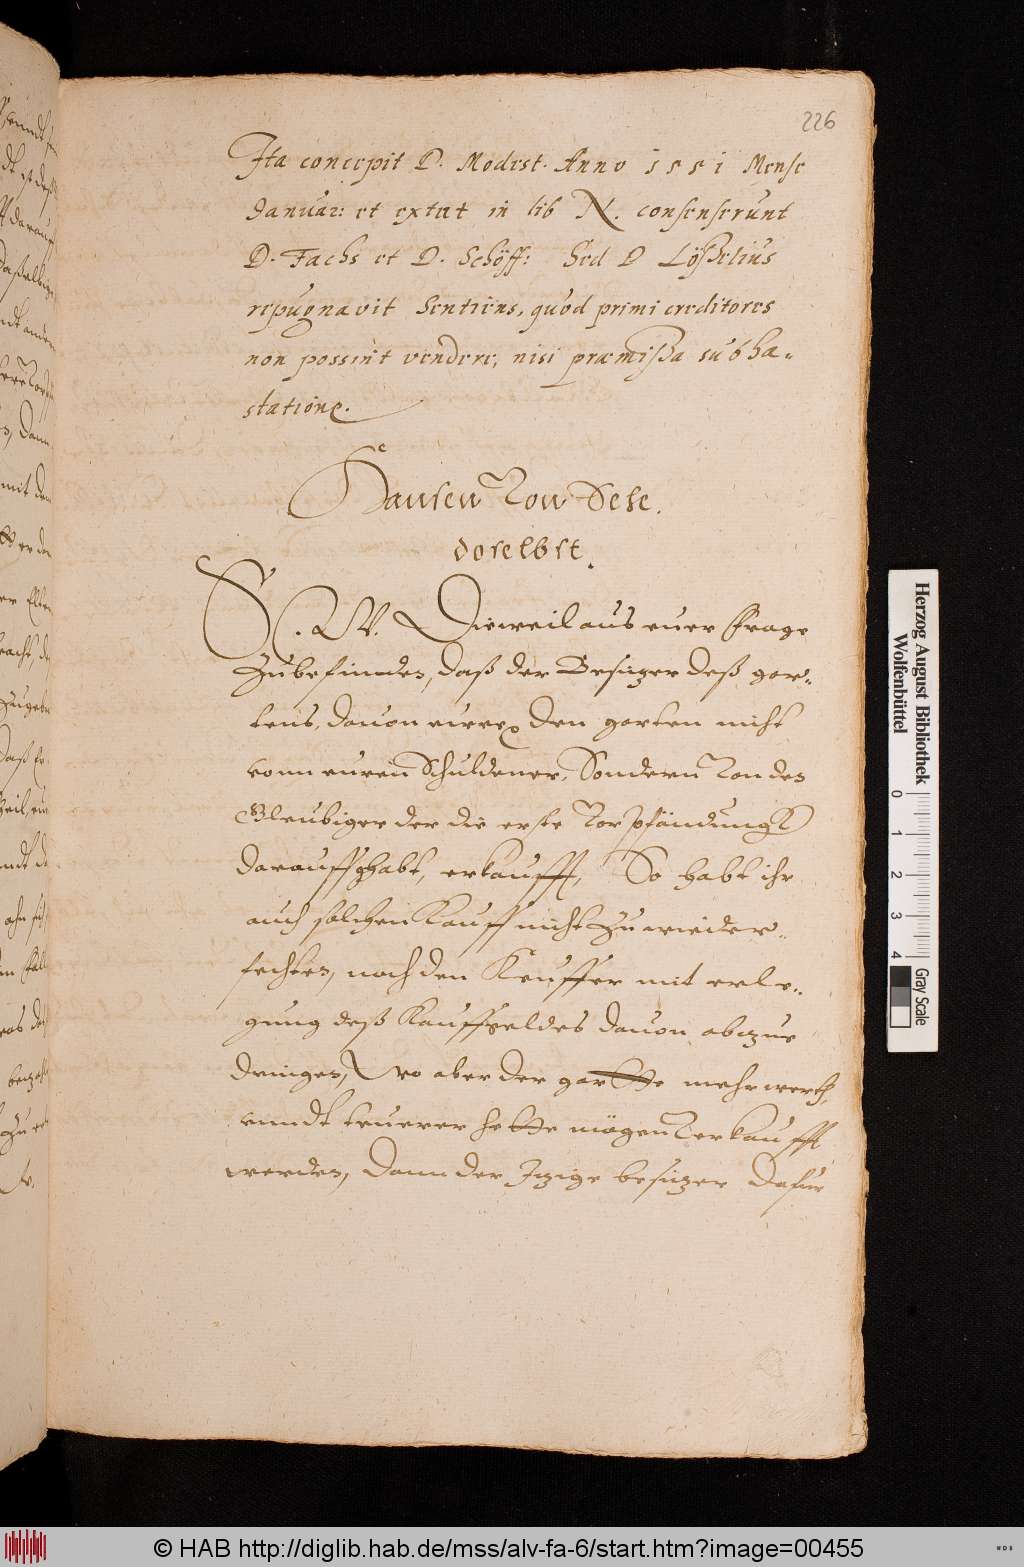 226
Ita concepit D. Modest. Anno 1551 Mense
Januar: et extat in lib N. consenserunt
D. Fachs et D. Schöff: Sed D Lößelius
repugnavit Sentiens, quod primi creditores
non possint vendere, nisi præmißa subha-
statione.
Hansen Von Dese
doselbst.
S. W. Dieweil aus euer frage
Zubefinden, daß der Besitzer deß gar-
tens, dauon eurer den garten nicht
vonn eurem Schuldener, Sondern Von den
Gleubiger der die erste Vorpfändung
darauff ghabt, erkaufft, So habt ihr
auch solchen Kauff nicht Zu wieder-
fechten, noch den Keuffer mit erle-
gung deß Kauffgeldes dauon abzue
dringen, Wo aber der gartte mehr werth,
vnndt teuerer hette mögen Verkaufft
werden, Dann der Itzige besitzer Dafur
Herzog August Bibliothek
Wolfenbüttel
0 1 2 3 4
Gray Scale
© HAB http://diglib.hab.de/mss/alv-fa-6/start.htm?image=00455